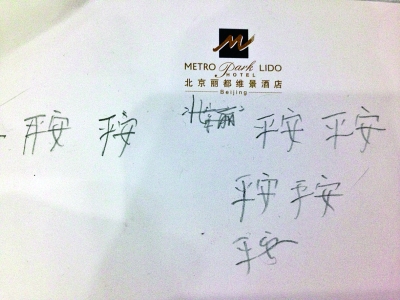 METRO Park LIDO
HOTEL
北京丽都维景酒店
Beijing
平安 平安 平安 平安
平安 平安
平安